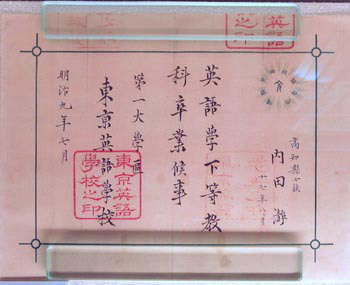 高知縣士族
內田瀞
十七年八月
英語學下等敎
科卒業候事
第一大學區
東京英語學校
明治九年七月
東京英語
學校之印